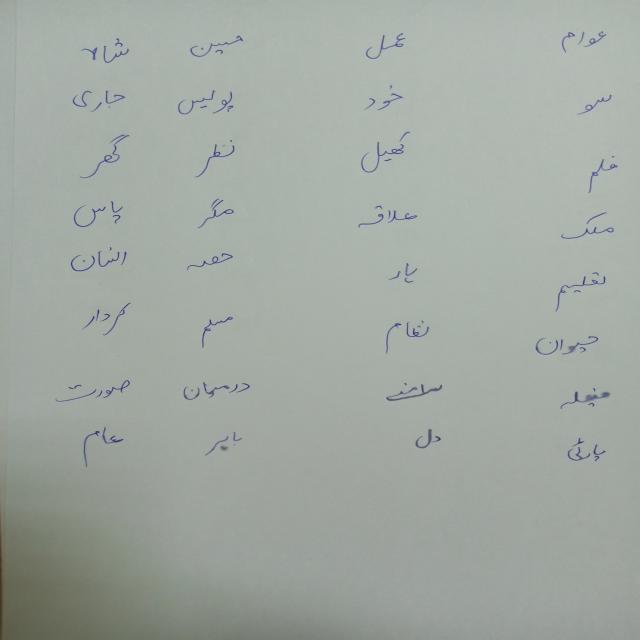 عوام عمل مین شاہ
سو خود پولیس جاری
فلم کھیل نظر گھر
ملک علاقہ مگر پاس
تعلیم یاد حصہ انسان
حیوان نظام مسلم کردار
فیصلہ سامنے درمیان صورت
پارٹی دل باہر عام